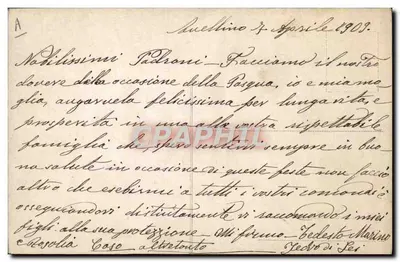 A
Avellino 7 Aprile 1909.
Nobilissimi Padroni - Facciamo il nostro
dovere dalla occasione della Pasqua, io e mia mo-
glia, augurvela felicissima per lunga vita, e
prosperità in una alla vostra rispettabile
famiglia che spero sentirvi sempre in buo
na salute in occasione di queste feste non faccio
altro che esebirmi a tutti i vostri comandi e
ossequiandovi distintamente vi raccomando i miei
figli alla sua protezzione - Mi firmo - Tedesto Marino
Caso